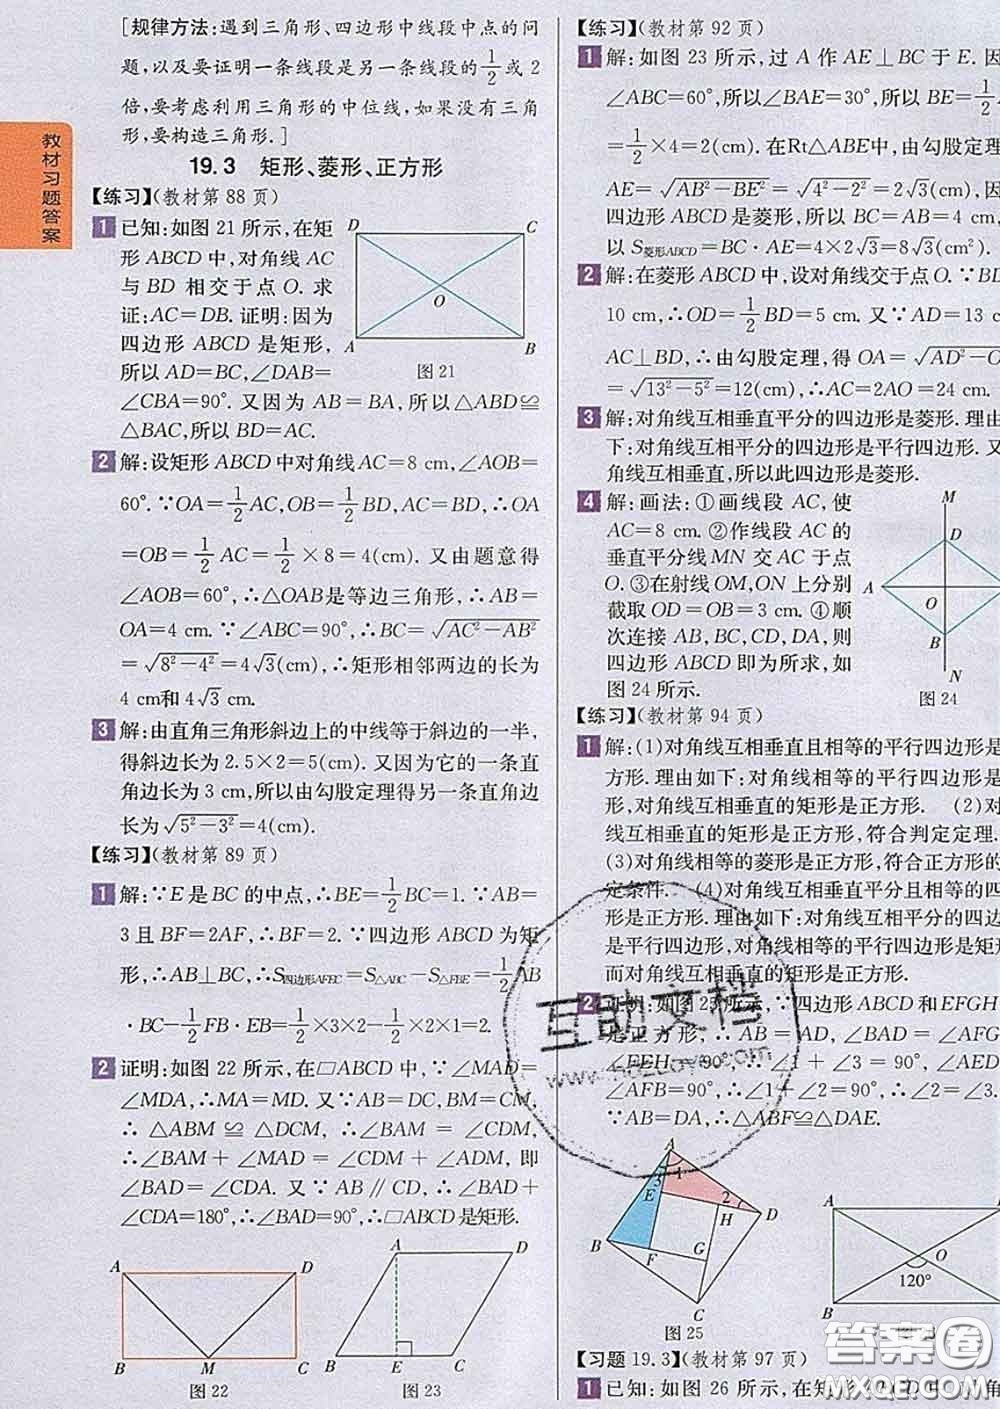 [规律方法:遇到三角形、四边形中线段中点的问
题,以及要证明一条线段是另一条线段的1/2或2
倍,要考虑利用三角形的中位线,如果没有三角
形,要构造三角形.]
19.3 矩形、菱形、正方形
【练习】(教材第88页)
1 已知:如图21所示,在矩
形ABCD中,对角线AC
与BD相交于点O.求
证:AC=DB.证明:因为
四边形ABCD是矩形,
所以AD=BC,∠DAB=
∠CBA=90°.又因为AB=BA,所以△ABD≌
△BAC,所以BD=AC.
D C O A B
图21
2 解:设矩形ABCD中对角线AC=8 cm,∠AOB=
60°.∵OA=1/2AC,OB=1/2BD,AC=BD,∴OA
=OB=1/2AC=1/2×8=4(cm).又由题意得
∠AOB=60°,∴△OAB是等边三角形,∴AB=
OA=4 cm.∵∠ABC=90°,∴BC=√(AC²-AB²)
=√(8²-4²)=4√3(cm),∴矩形相邻两边的长为
4 cm和4√3 cm.
3 解:由直角三角形斜边上的中线等于斜边的一半,
得斜边长为2.5×2=5(cm).又因为它的一条直
角边长为3 cm,所以由勾股定理得另一条直角边
长为√(5²-3²)=4(cm).
【练习】(教材第89页)
1 解:∵E是BC的中点,∴BE=1/2BC=1.∵AB=
3且BF=2AF,∴BF=2.∵四边形ABCD为矩
形,∴AB⊥BC,∴S四边形AFEC=S△ABC-S△FBE=1/2AB
·BC-1/2FB·BE=1/2×3×2-1/2×2×1=2.
2 证明:如图22所示,在□ABCD中,∵∠MAD=
∠MDA,∴MA=MD.又∵AB=DC,BM=CM,
∴△ABM≌△DCM,∴∠BAM=∠CDM,
∴∠BAM+∠MAD=∠CDM+∠ADM,即
∠BAD=∠CDA.又∵AB∥CD,∴∠BAD+
∠CDA=180°,∴∠BAD=90°,∴□ABCD是矩形.
A D B M C
图22
A D B E C
图23
教材习题答案
【练习】(教材第92页)
1 解:如图23所示,过A作AE⊥BC于E.因
∠ABC=60°,所以∠BAE=30°,所以BE=
1/2×4=2(cm).在Rt△ABE中,由勾股定理
AE=√(AB²-BE²)=√(4²-2²)=2√3(cm).因
四边形ABCD是菱形,所以BC=AB=4 cm,
以S菱形ABCD=BC·AE=4×2√3=8√3(cm²).
2 解:在菱形ABCD中,设对角线交于点O.∵BD
10 cm,∴OD=1/2BD=5 cm.又∵AD=13 c
AC⊥BD,∴由勾股定理,得OA=√(AD²-O
=√(13²-5²)=12(cm),∴AC=2AO=24 cm.
3 解:对角线互相垂直平分的四边形是菱形.理由
下:对角线互相平分的四边形是平行四边形.又
角线互相垂直,所以此四边形是菱形.
4 解:画法:①画线段AC,使
AC=8 cm.②作线段AC的
垂直平分线MN交AC于点
O.③在射线OM,ON上分别
截取OD=OB=3 cm.④顺
次连接AB,BC,CD,DA,则
四边形ABCD即为所求,如
图24所示.
M D A O B N
图24
【练习】(教材第94页)
1 解:(1)对角线互相垂直且相等的平行四边形是
方形.理由如下:对角线相等的平行四边形是
形,对角线互相垂直的矩形是正方形. (2)对
线互相垂直的矩形是正方形,符合判定定理.
(3)对角线相等的菱形是正方形,符合正方形的
定条件. (4)对角线互相垂直平分且相等的四
形是正方形.理由如下:对角线互相平分的四边
是平行四边形,对角线相等的平行四边形是矩形
而对角线互相垂直的矩形是正方形.
2 证明:如图25所示,∵四边形ABCD和EFGH
是正方形,∴AB=AD,∠BAD=∠AFG
∠EEH=90°,∴∠1+∠3=90°,∠AED=
∠AFB=90°,∴∠1+∠2=90°,∴∠2=∠3.
∵AB=DA,∴△ABF≌△DAE.
A 1 3 E 2 H D B F G C
图25
A O 120° B
【习题19.3】(教材第97页)
1 已知:如图26所示,在矩形ABCD中,
互助文档
答案圈
MXQE.COM